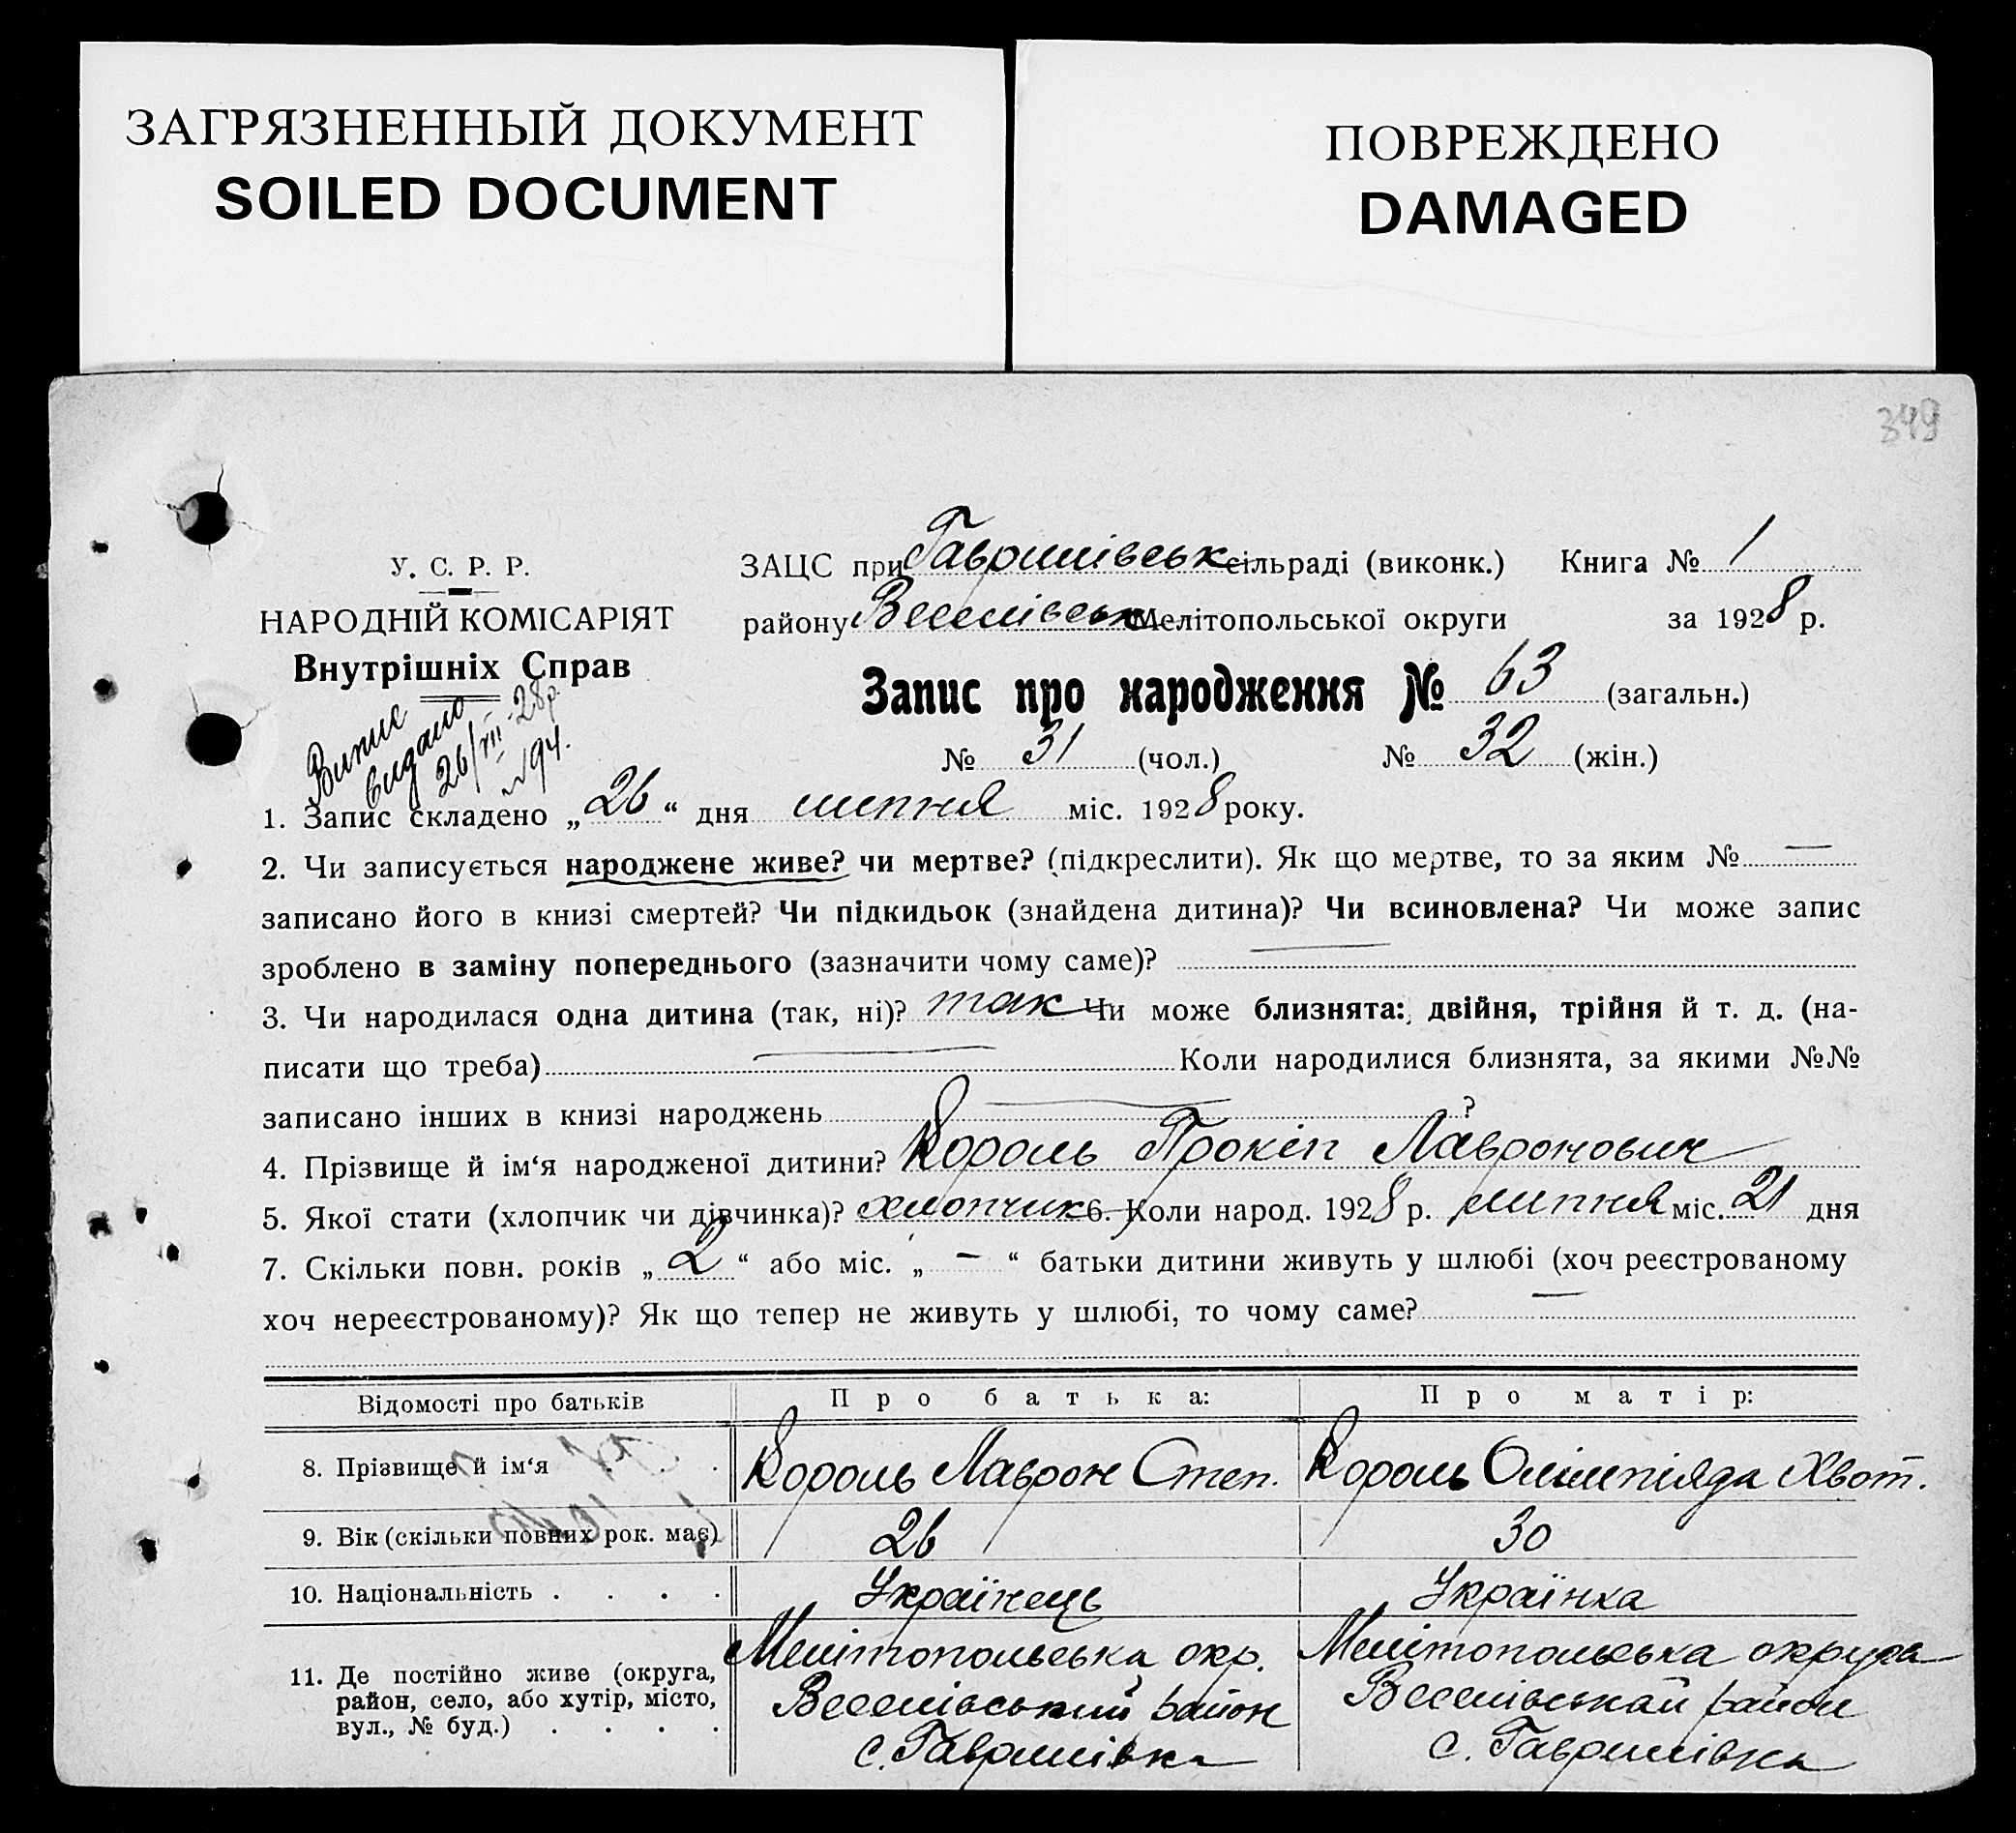 ЗАГРЯЗНЕННЫЙ ДОКУМЕНТ
SOILED DOCUMENT
ПОВРЕЖДЕНО
DAMAGED
349
У. С. Р. Р.
НАРОДНІЙ КОМІСАРІЯТ
Внутрішніх Справ
Випис
видано
26/VII-28р
№94.
ЗАЦС при Гаврилівськ сільраді (виконк.) Книга № 1
району Веселівськ Мелітопольської округи за 1928 р.
Запис про народження № 63 (загальн.)
№ 31 (чол.) № 32 (жін.)
1. Запис складено „26“ дня липня міс. 1928 року.
2. Чи записується народжене живе? чи мертве? (підкреслити). Як що мертве, то за яким № —
записано його в книзі смертей? Чи підкидьок (знайдена дитина)? Чи всиновлена? Чи може запис
зроблено в заміну попереднього (зазначити чому саме)? —
3. Чи народилася одна дитина (так, ні)? так Чи може близнята: двійня, трійня й т. д. (на-
писати що треба) — Коли народилися близнята, за якими №№
записано інших в книзі народжень — ?
4. Прізвище й ім‘я народженої дитини? Король Прокіп Лавронович
5. Якої стати (хлопчик чи дівчинка)? хлопчик 6. Коли народ. 1928 р. липня міс. 21 дня
7. Скільки повн. років „2“ або міс. „—“ батьки дитини живуть у шлюбі (хоч реєстрованому
хоч нереєстрованому)? Як що тепер не живуть у шлюбі, то чому саме? —
Відомості про батьків Про батька: Про матір:
8. Прізвище й ім‘я . . Король Лаврон Степ. Король Олімпіяда Хвот.
9. Вік (скільки повних рок. має) 26 30
10. Національність . . . . Українець Українка
11. Де постійно живе (округа, район, село, або хутір, місто, вул., № буд.) . . . .
Мелітопольська окр. Мелітопольська округа
Веселівський район Веселівський район
с. Гаврилівка с. Гаврилівка